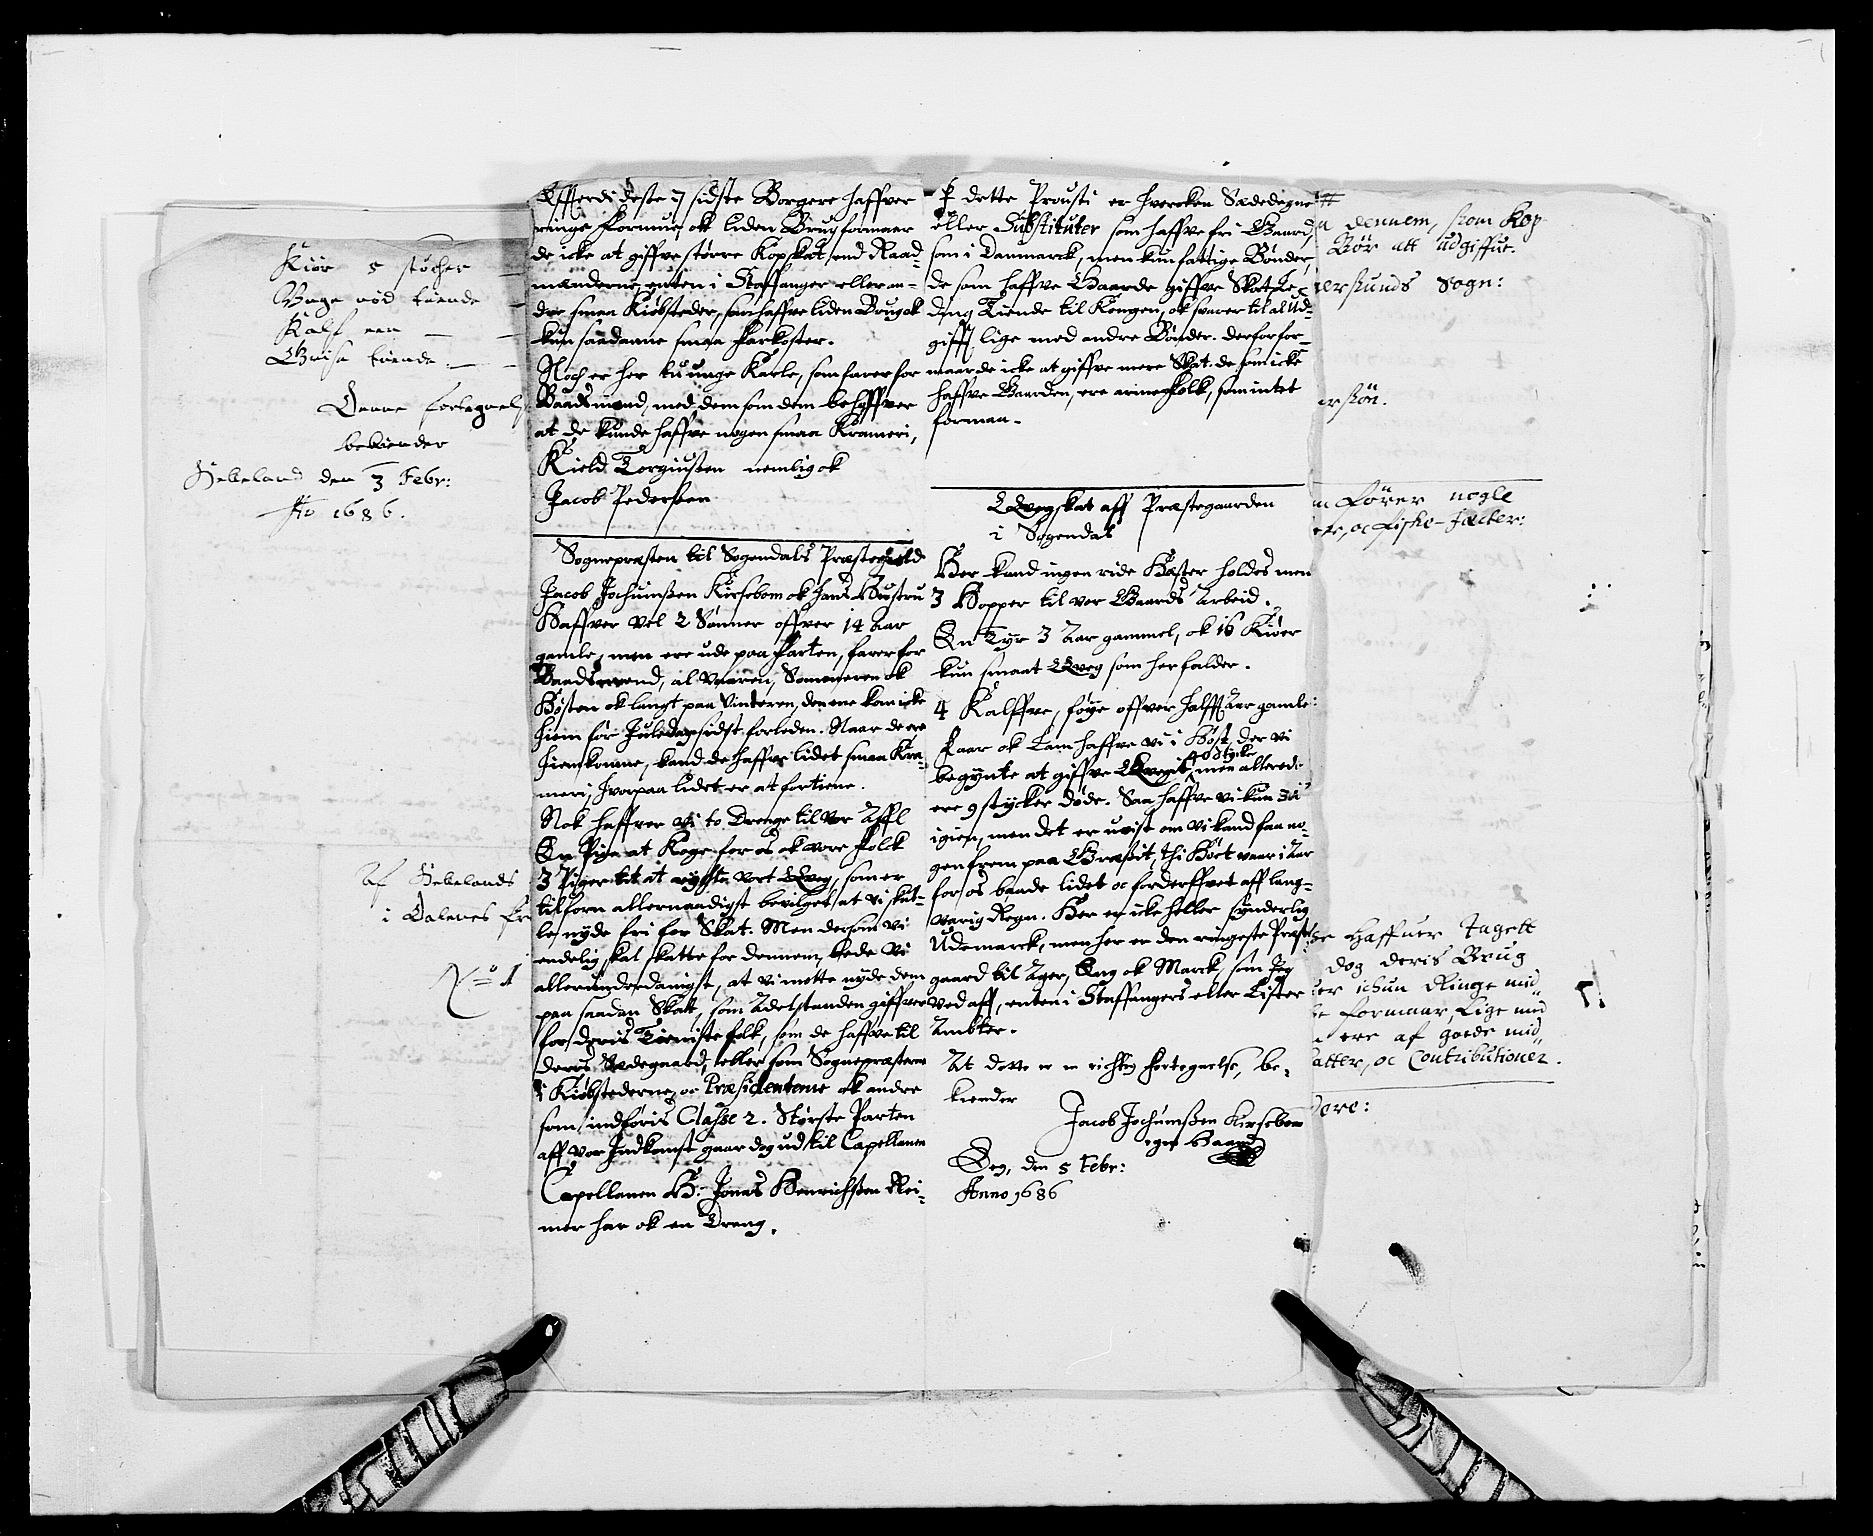 Kiør 5 støcher
Unge nød tuende
Kalf een
Griise tuende
Denne fortegnels
bekiender
Hebeland den 3 Febr:
Ao 1686.
Af Hebelands
i Dalenes
No 1
Effterdi deste 7 sidste Borgere haffver
ringe Formue, ok liden Brug formaar
de icke at giffve større Kopskat, end Raad-
mænderne, enten i Staffanger eller an-
dre smaa Kiøbsteder, som haffve liden Brug ok
kun saadanne smaa farkoster.
Noch er her tu unge Karle, som farer for
Baadsmend, med dem som dem behøffver
at de kunde haffve nogen smaa Krameri,
Kield Torgiußen nemlig ok
Jacob Pederßen
Sognepræsten til Sogendals Præstegield
Jacob Jochumßen Kirsebom ok hans Hustru
Haffver vel 2 Sønner offver 14 Aar
gamle, men ere ude paa Farten, farer for
Baadsmend, al Vaaren, Sommeren ok
Høsten ok langt paa Vinteren, den ene kom icke
hiem før Juledag sidst forleden. Naar de ere
hiemkomne, kand de haffve lidet smaa Kra-
meri, hvorpaa lidet er at fortiene.
Nok haffver vi to Drenge til vor Affl
En Pige at Koge for os ok vore Folck
3 Piger til at røgte vort Qveg, som er
tilforn allernaadigst bevilget at vi skul-
le nyde fri for Skat. Men dersom vi
endelig skal skatte for dennem, bede vi
allerunderdanigst, at vi motte nyde dem
paa saadan Skat, som Adelstanden giffver
for deris Tienistefolk, som de haffve til
deris Sædegaard, eller som Sognepræsterne
i Kiøbstederne, oc Præsidenterne ok andre
som indføris Classe 2. Største Parten
aff vor Indkomst gaar dog ud til Capellanen
Capellanen H: Jonas Henrichßen Rei-
mer har ok en Dreng.
I dette Prousti er hvercken Sædedegne
eller Substituter som haffve fri Gaard,
som i Danmarck, men kun fattige Bønder,
de som haffve Gaarde giffve Skat, Le-
ding Tiende til Kongen, ok svarer til al Ud-
gifft lige med andre Bønder. derfor for-
maar de icke at giffve mere Skat. de som icke
haffve Gaarden, ere arme Folk, som intet
formaa.
Qvegskat aff Præstegaarden
i Sogendal
Her kand ingen ride Hæster holdes men
3 Hopper til vor Gaards Arbeid.
En Tyr 3 Aar gammel, ok 16 Kiøer
kun smaat Qveg som her falder.
4 Kalffve, føye offver halfft Aar gamle:
Faar ok Lam haffve vi i Høst, der vi
40 stycke
begynte at giffve Qvegit, men allerede
ere 9 stycker døde. Saa haffve vi kun 31
igien, men det er uvist om vi kand faa no-
gen frem paa Græßit, thi Høet vaar i Aar
for os baade lidet oc forderffvet aff lang-
varig Regn. Her er icke heller synderlig
Udemarck, men her er den ringeste Præste
gaard til Ager, Eng ok Marck, som Jeg
ved aff, enten i Staffangers eller Lister
Ambter.
At dette er en richtig Fortegnelse, be-
kiender
Jacob Jochumßen Kirsebom
egen Haand
Eeg, den 5 Febr:
Anno 1686
dennem, som Kop
Bør att udgiffue.
ersunds Sogn:
erskön.
m Fører nogle
ere, oc fiske-Jacter:
haffuer Tagett
dog deris Brug
er ichun Ringe mid
e formaar, Lige mid
ere af goede mid
atter, oc Contributioner.
dere: